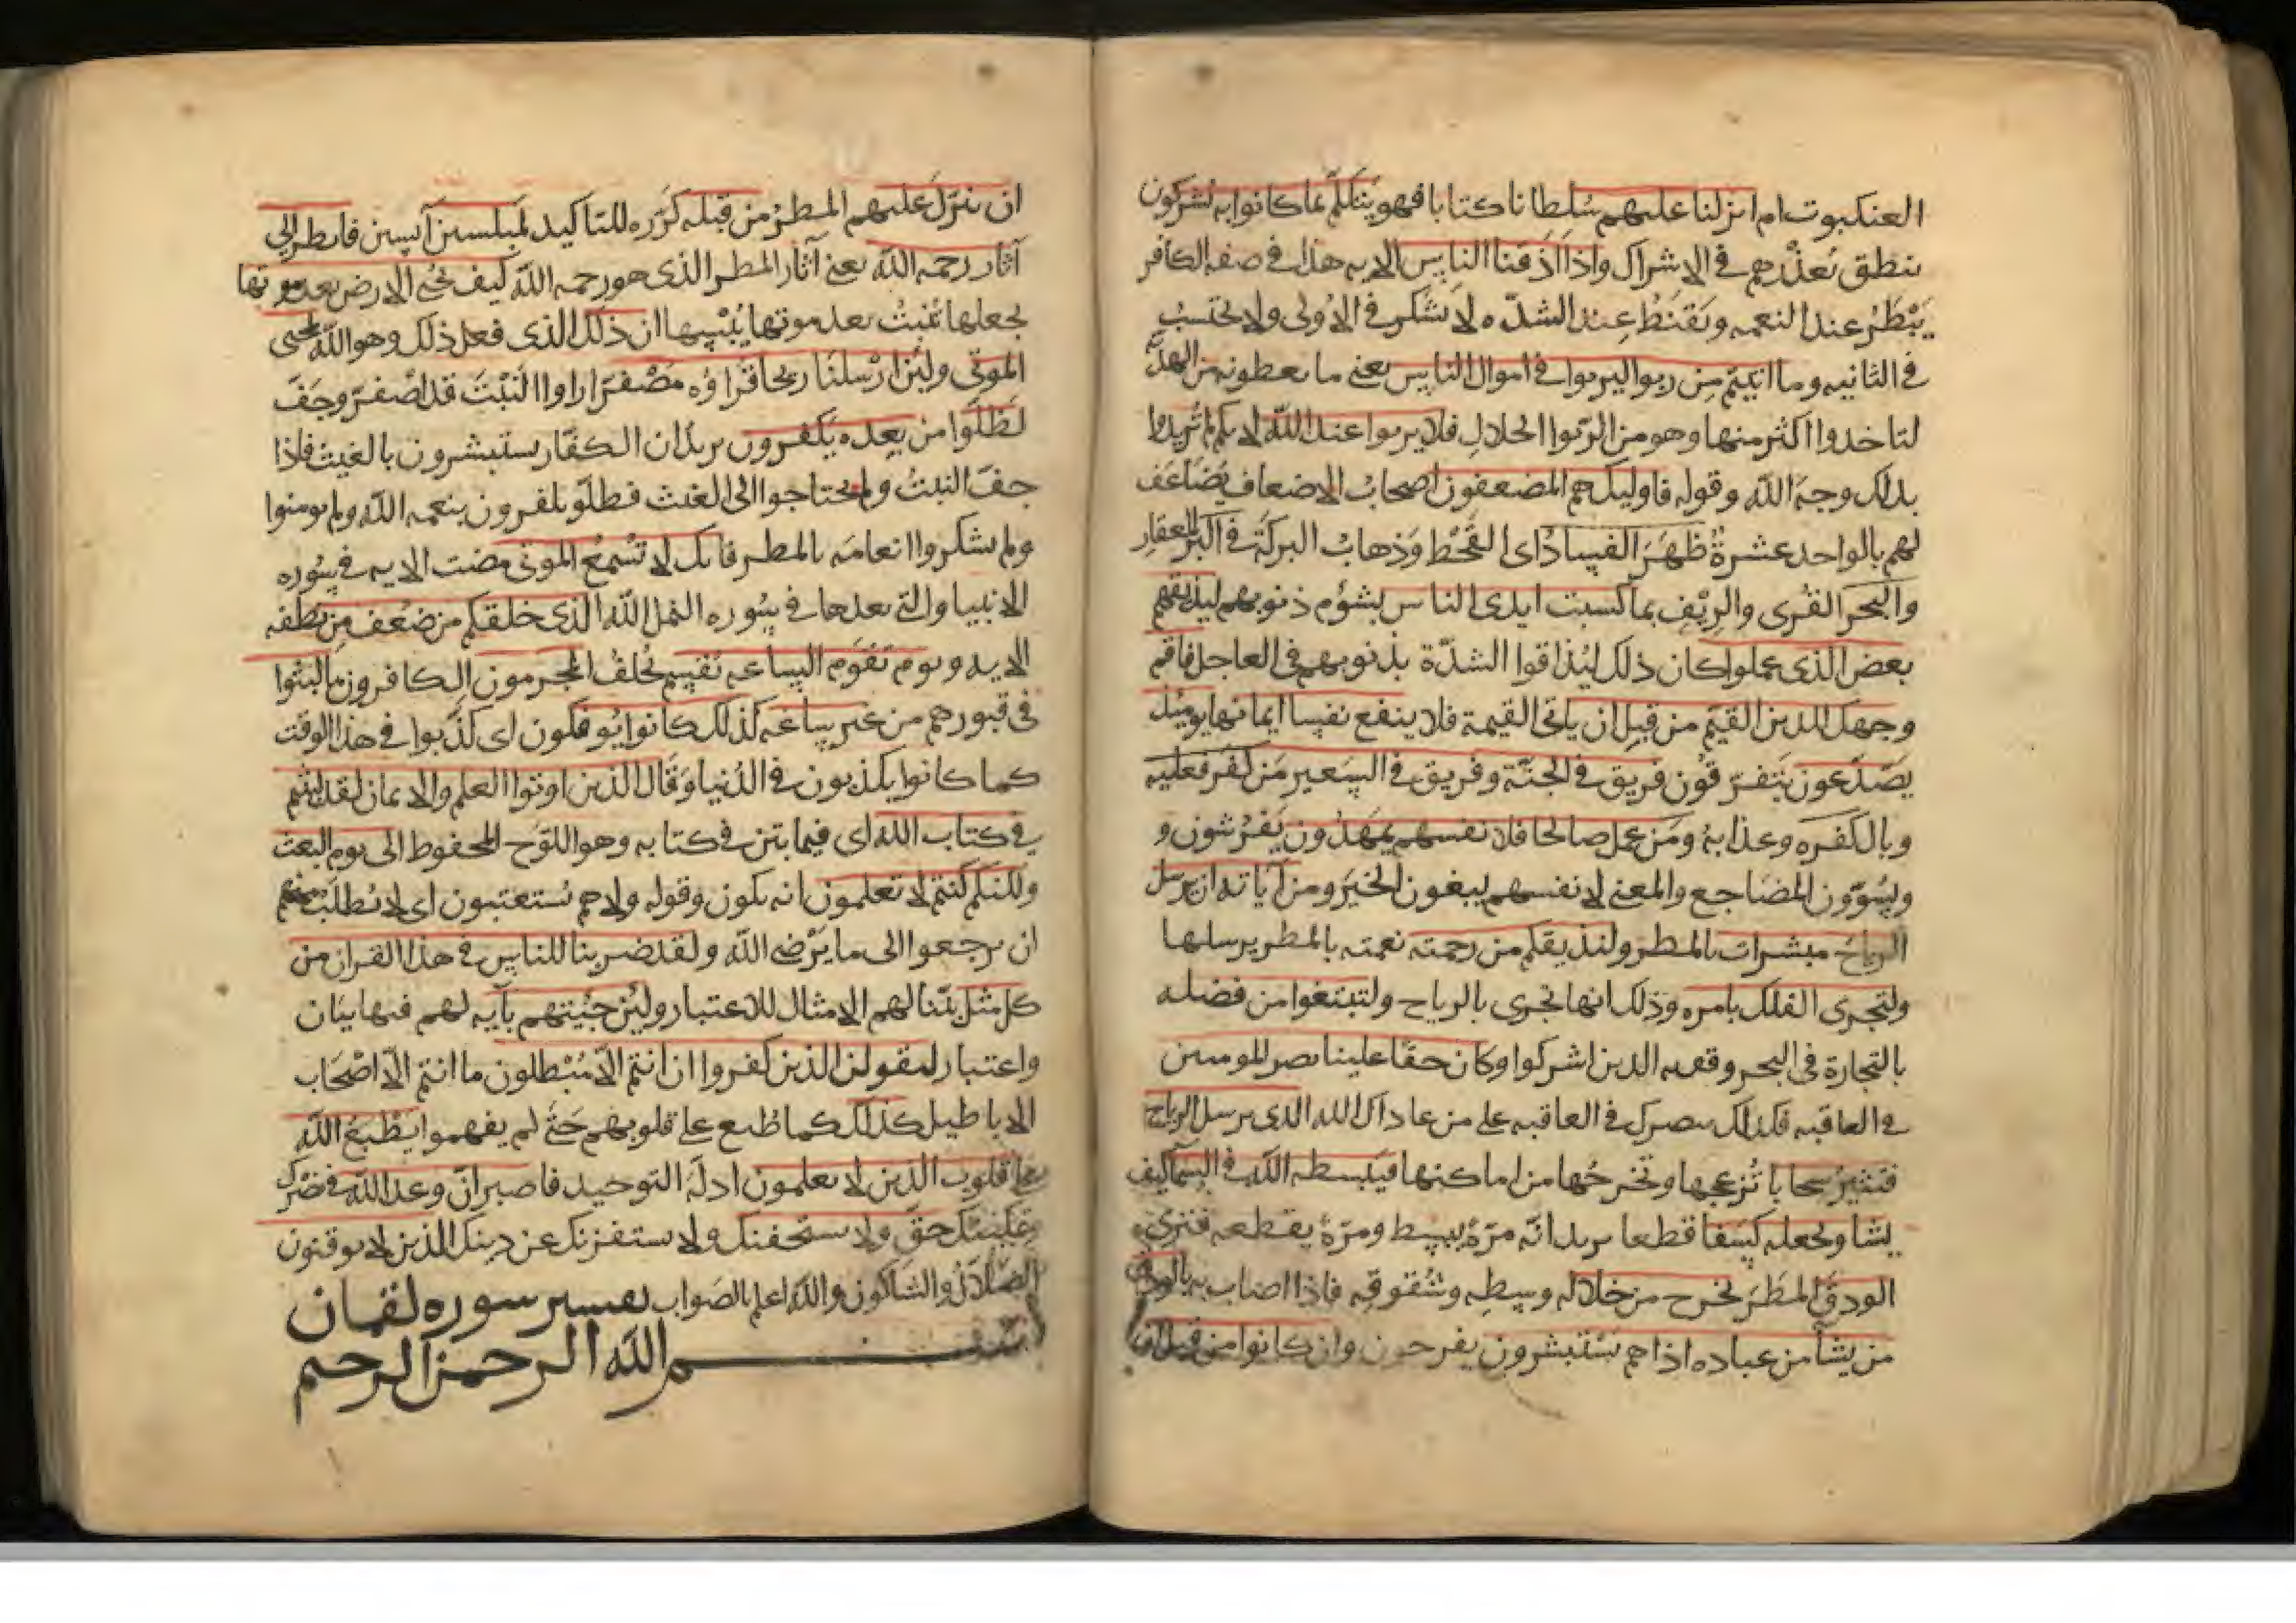 العنكبوت ام انزلنا عليهم سلطانا كتابا فهو يتكلم بما كانوا به يشركون
ينطق بعذرهم في الاشراك واذا اذقنا الناس الايه هذا في صفه الكافر
يبطر عند النعمه ويقنط عند الشده لا يشكر في الاولى ولا يحتسب
في الثانيه وما اتيتم من ربوا ليربوا في اموال الناس يعني ما يعطونه من الهديه
لتاخذوا اكثر منها وهو من الربوا الحلال فلا يربوا عند الله لانكم لم تريدوا
بذلك وجه الله وقوله فاوليك هم المضعفون اصحاب الاضعاف يضاعف
لهم بالواحد عشرة ظهر الفساد اى القحط وذهاب البركة في البر القفار
والبحر القرى والريف بما كسبت ايدى الناس بشؤم ذنوبهم ليذيقهم
بعض الذى عملوا كان ذلك ليذاقوا الشدة بذنوبهم في العاجل فاقم
وجهك للدين القيم من قبل ان ياتى القيمة فلا ينفع نفسا ايمانها يوميذ
يصدعون يتفرقون فريق في الجنة وفريق في السعير من كفر فعليه
وبال كفره وعذابه ومن عمل صالحا فلانفسهم يمهدون يفرشون و
ويسوون المضاجع والمعنى لانفسهم يبغون الخير ومن آياته ان يرسل
الرياح مبشرات بالمطر وليذيقكم من رحمته نعمته بالمطر يرسلها
ولتجرى الفلك بامره وذلك انها تجرى بالرياح ولتبتغوا من فضله
بالتجارة في البحر وقصه الذين اشركوا وكان حقا علينا نصر المومنين
في العاقبه فكذلك ننصرك في العاقبه على من عاداك الله الذى يرسل الرياح
فتثير سحابا تزعجها وتخرجها من اماكنها فيبسطه الله في السما كيف
يشا ويجعله كسفا قطعا يريد انه مرة يبسط ومرة يقطعه فترى
الودق المطر يخرج من خلاله وسطه وشقوقه فاذا اصاب به بالودق
من يشا من عباده اذا هم يستبشرون يفرحون وان كانوا من قبل ان
ان ينزل عليهم المطر من قبله كرره للتاكيد لمبلسين آيسين فانظر الى
آثار رحمه الله يعني آثار المطر الذى هو رحمه الله كيف يحي الارض بعد موتها
يجعلها تنبت بعد موتها يبسها ان ذلك الذى فعل ذلك وهو الله لمحيى
الموتى ولئن ارسلنا ريحا فراؤه مصفرا راوا النبت قد اصفر وجف
لظلوا من بعده يكفرون يريد ان الكفار يستبشرون بالغيث فاذا
جف النبت ولم يحتاجوا الى الغيث فظلوا يكفرون بنعمه الله ولم يومنوا
ولم يشكروا انعامه بالمطر فانك لا تسمع الموتى مضت الايه في سوره
الانبيا والتى بعدها في سوره النمل الله الذى خلقكم من ضعف من نطفه
الايه ويوم تقوم الساعه يقسم يحلف المجرمون الكافرون ما لبثوا
في قبورهم من غير ساعه كذلك كانوا يوفكون اى كذبوا في هذا الوقت
كما كانوا يكذبون في الدنيا وقال الذين اوتوا العلم والايمان لقد لبثتم
في كتاب الله اى فيما بين في كتابه وهو اللوح المحفوظ الى يوم البعث
ولكنكم كنتم لا تعلمون انه يكون وقوله ولا هم يستعتبون اى لا يطلب منهم
ان يرجعوا الى ما يرضى الله ولقد ضربنا للناس في هذا القران من
كل مثل بينا لهم الامثال للاعتبار ولئن جيتهم بآيه لهم فيها بيان
واعتبار ليقولن الذين كفروا ان انتم الا مبطلون ما انتم الا اصحاب
الاباطيل كذلك كما طبع على قلوبهم حتى لم يفهموا يطبع الله
على قلوب الذين لا يعلمون ادلة التوحيد فاصبر ان وعد الله في نصرك
وتمكينك حق ولا يستخفنك ولا يستفزنك عن دينك الذين لا يوقنون
الضلال والشاكون والله اعلم بالصواب تفسير سوره لقمان
بسم الله الرحمن الرحيم